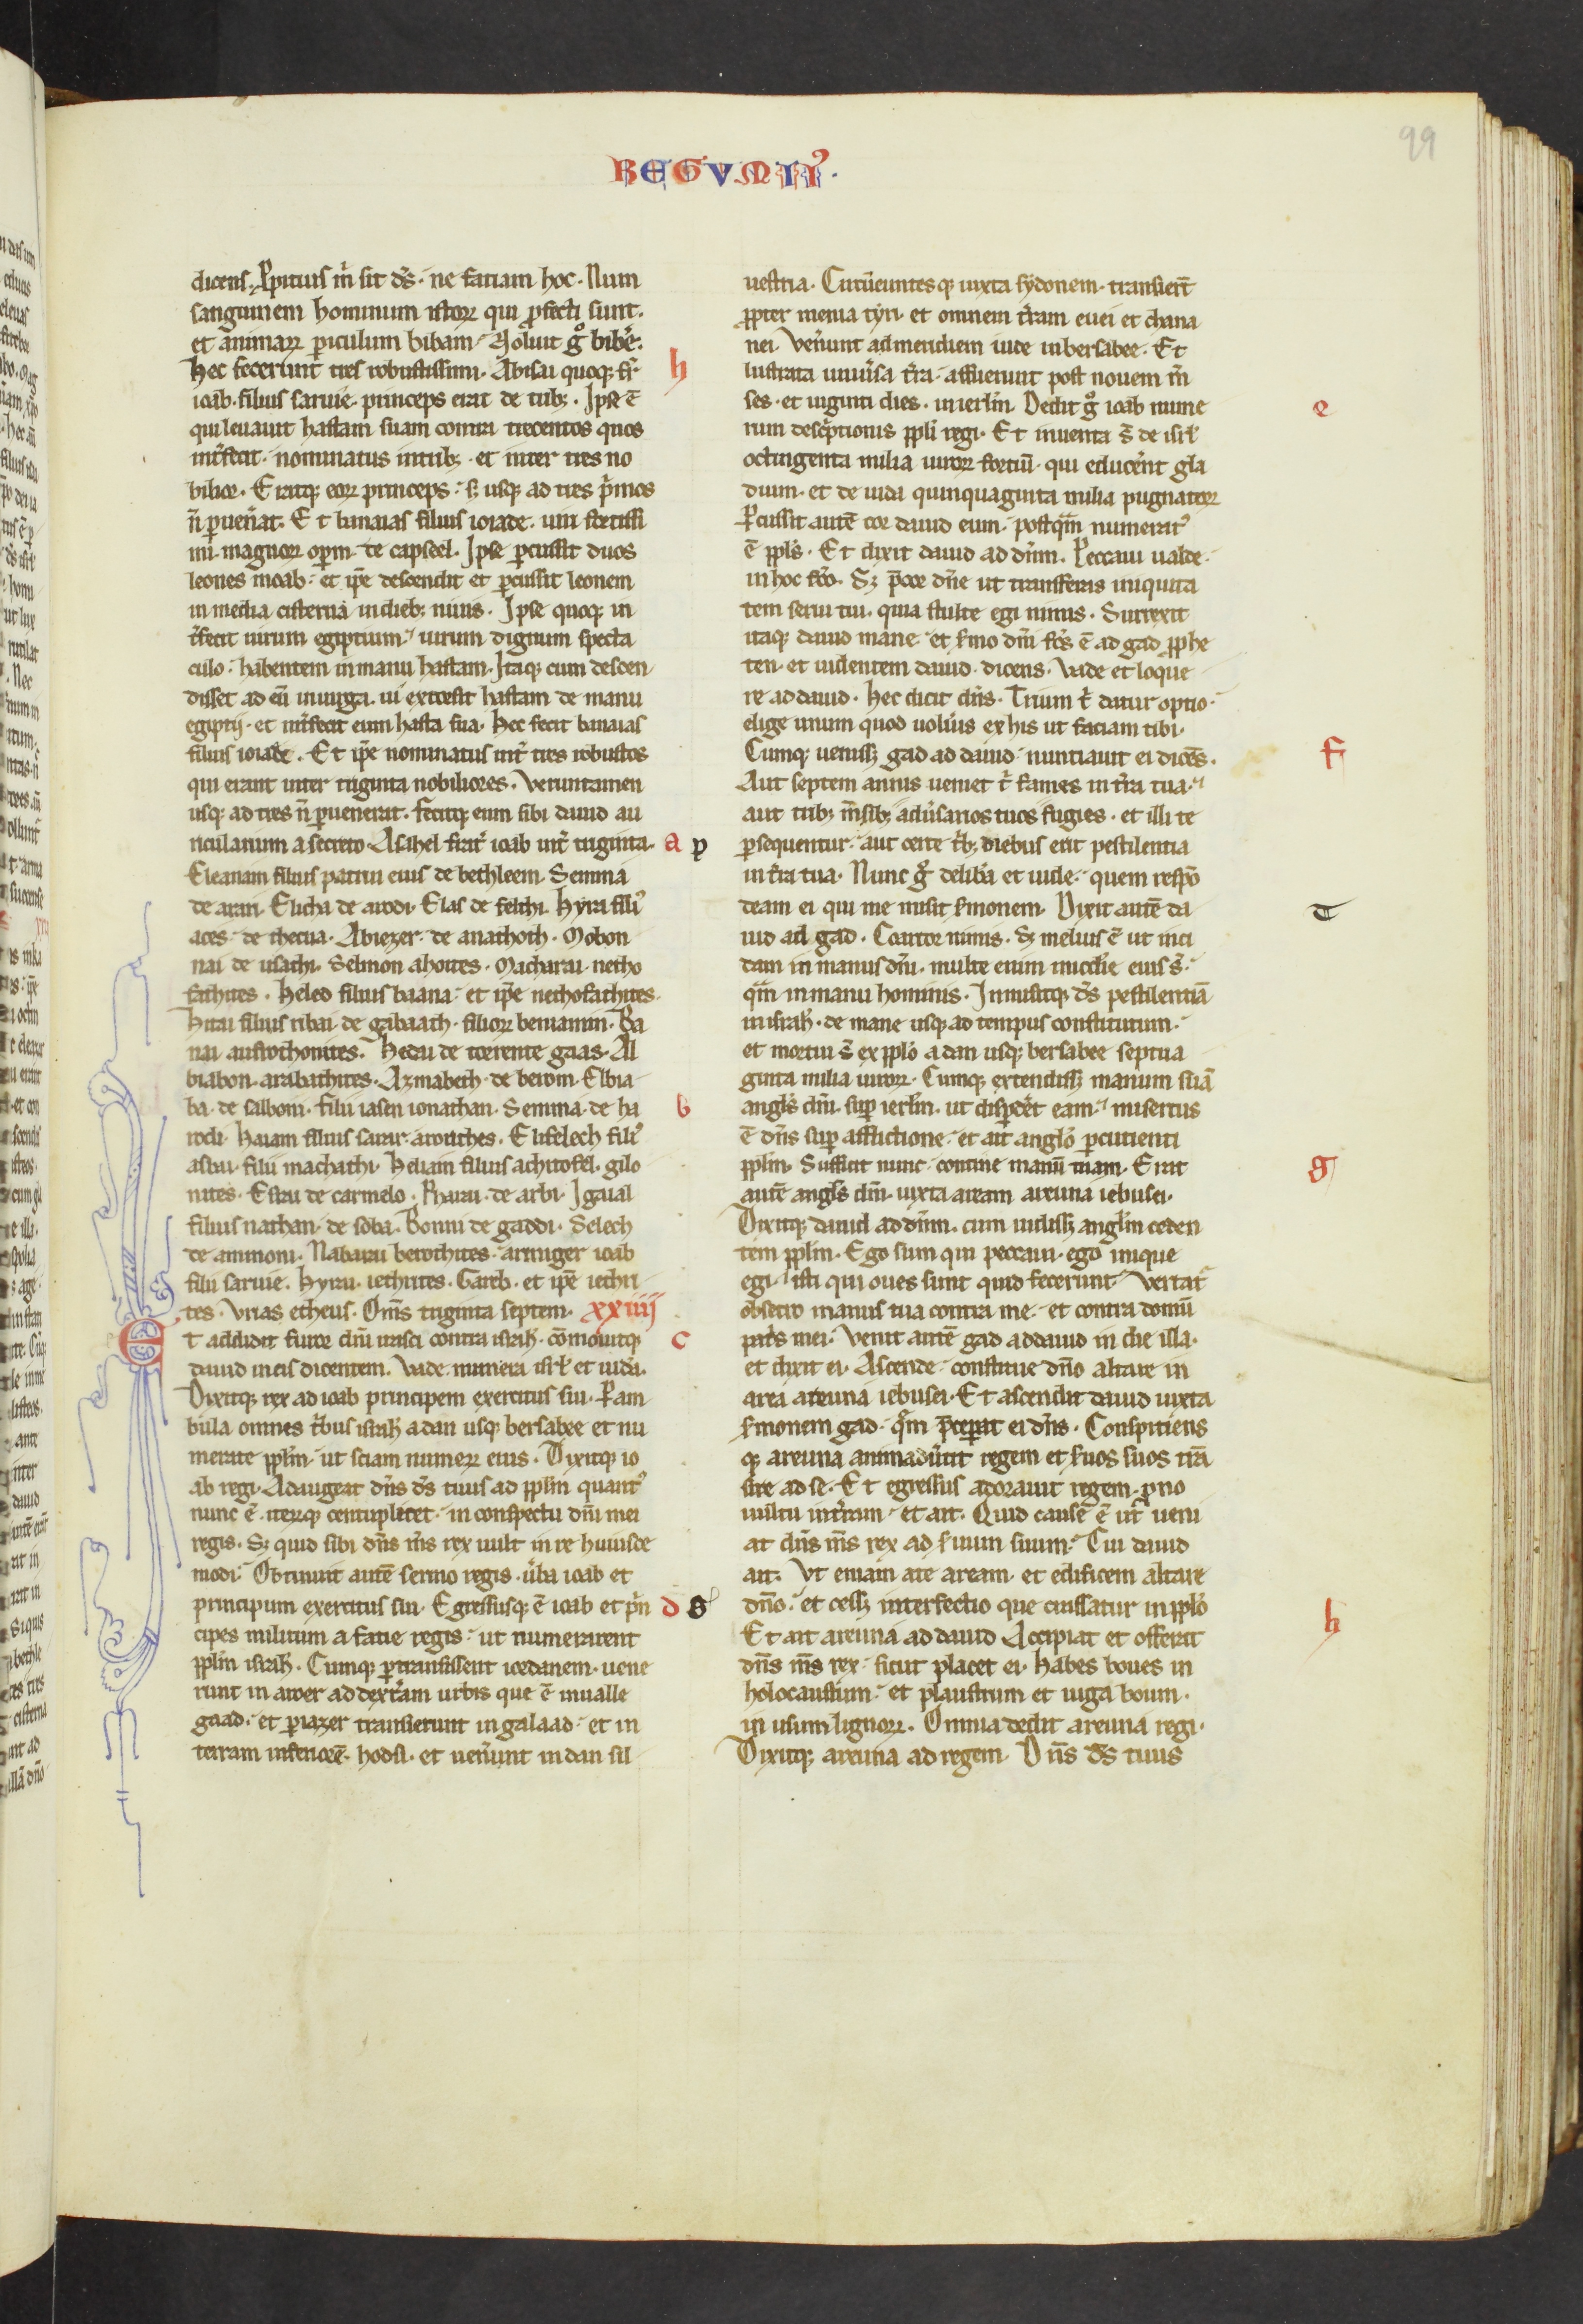 99
REGVM II
dicens. Ꝓpitius m̄ sit ds̄. ne faciam hoc. Num
sanguinem hominum istoꝝ qui ꝓfecti sunt.
et animaꝝ ꝑiculum bibam. Noluit gͦ bibe͛.
Hec fecerunt tres robustissimi. Abisai quoqꝫ fr̄
ioab. filius saruie. princeps erat de tribꝫ. Ipse ē
qui leuauit hastam suam contra trecentos quos
int͛fecit. nominatus in tribꝫ. et inter tres no
bilior. Eratqꝫ eoꝝ princeps. sꝫ usqꝫ ad tres p͛mos
n̄ ꝑuen͛at. Et banaias filius ioiade. uiri fortissi
mi. magnoꝝ oꝑum. de capseel. Ipse ꝑcussit duos
leones moab. et ip̄e descendit et ꝑcussit leonem
in media cisterna in diebꝫ niuis. Ipse quoqꝫ in
t͛fecit uirum egiptium. uirum dignum specta
culo. habentem in manu hastam. Itaqꝫ cum descen
disset ad eū in uirga. ui extorsit hastam de manu
egiptij. et int͛fecit eum hasta sua. Hec fecit banaias
filius ioiade. Et ip̄e nominatus int͛ tres robustos
qui erant inter triginta nobiliores. Veruntamen
usqꝫ ad tres n̄ ꝑuenerat. Fecitqꝫ eum sibi dauid au
ricularium a secreto. Asahel frat͛ ioab int͛ triginta.
Eleanam filius patrui eius de bethleem. Semma
de arari. Elicha de arodi. Elas de felthi. Hyra fili᾽
aces. de thecua. Abiezer. de anathoth. Mobon
nai de usathi. Selmon ahoites. Macharai. netho
fathites. Heled filius baana. et ip̄e nethofathites.
Hitai filius ribai de gabaath. filioꝝ beniamin. Ba
nai aufrothonites. Hedai de torrente gaas. Al
biabon. arabathites. Azmabeth. de berom. Elbia
ba. de salboni. Filii iasen ionathan. Semma. de ha
rodi. Haiam filius sarar. arorithes. Elifelech fili᾽
asbai. filii machathi. Heliam filius achitofel. gilo
nites. Esrai de carmelo. Pharai. de arbi. Igaal
filius nathan. de soba. Bonni de gaddi. Selech
de ammoni. Nabarai berothites. armiger ioab
filii saruie. Hyrai. iethrites. Gareb. et ip̄e iethri
tes. Vrias etheus. Om̄s triginta septem. xxiiij
Et addidit furor dn̄i irasci contra israhꝉ. cōmouitqꝫ
dauid in eis dicentem. Vade. numera isrꝉ et iuda.
Dixitqꝫ rex ad ioab principem exercitus sui. Ꝑam
bula omnes t͛bus israhꝉ a dan usqꝫ bersabee et nu
merate ppl̄m. ut sciam numerꝝ eius. Dixitqꝫ io
ab regi. Adaugeat dn̄s ds̄ tuus ad ppl̄m quant᾽
nunc ē. iterqꝫ centuplicet. in conspectu dn̄i mei
regis. Sꝫ quid sibi dn̄s m̄s rex uult in re huiusce
modi. Obtinuit autē sermo regis. u͛ba ioab et
principum exercitus sui. Egressusqꝫ ē ioab et p͛n
cipes militum a facie regis. ut numerarent
ppl̄m israhꝉ. Cumqꝫ ꝑtransissent iordanem. uene
runt in aroer ad dext͛am urbis que ē in ualle
gaad. et ꝑ iazer transierunt in galaad. et in
terram inferiorē. hodsi. et uen͛unt in dan sil
h
a p
b
c
d S
uestria. Circūeuntesqꝫ iuxta sydonem. transier̄t
ꝓpter menia tyri. et omnem t͛ram euei et chana
nei. Ven͛unt ad meridiem iude in bersabee. Et
lustrata uniu͛sa t͛ra. affuerunt post nouem m̄
ses. et uiginti dies. in ierlm̄. Dedit gͦ ioab nume
rum desc͛ptionis ppl̄i regi. Et inuenta s̄t de isrꝉ
octingenta milia uiroꝝ fortiū. qui educer̄nt gla
dium. et de iuda quinquaginta milia pugnatoꝝ
Ꝑcussit autē cor dauid eum. postqm̄ numerat᾽
ē ppl̄s. Et dixit dauid ad dn̄m. Peccaui ualde.
in hoc fc̄o. Sꝫ p̄cor dn̄e ut transferas iniquita
tem serui tui. quia stulte egi nimis. Surrexit
itaqꝫ dauid mane. et s͛mo dn̄i fc̄s ē ad gad ꝓphe
ten. et uidentem dauid. dicens. Vade et loque
re ad dauid. Hec dicit dn̄s. Trium t͛ datur optio.
elige unum quod uolu͛is ex his ut faciam tibi.
Cumqꝫ uenissꝫ gad ad dauid. nuntiauit ei dicēs.
Aut septem annis ueniet t͛ fames in t͛ra tua.
aut tribꝫ m̄sibꝫ adu͛sarios tuos fugies. et illi te
ꝑsequentur. aut certe t͛bꝫ diebus erit pestilentia
in t͛ra tua. Nunc gͦ delib͛a et uide. quem respō
deam ei qui me misit s͛monem. Dixit autē da
uid ad gad. Coartor nimis. Sꝫ melius ē ut inci
dam in manus dn̄i. multe enim mic̄die eius s̄t.
qm̄ in manu hominis. Inmisitqꝫ dn̄s pestilentiā
in israhꝉ. de mane usqꝫ ad tempus constitutum.
et mortui s̄t ex ppl̄o a dan usqꝫ bersabee septua
ginta milia uiroꝝ. Cumqꝫ extendissꝫ manum suā
angl̄s dn̄i. suꝑ ierlm̄. ut disꝑder̄t eam. misertus
ē dn̄s suꝑ afflictione. et ait angl̄o ꝑcutienti
ppl̄m. Sufficit nunc. contine manū tuam. Erat
autē angl̄s dn̄i. iuxta aream areuna iebusei.
Dixitqꝫ dauid ad dn̄m. cum uidissꝫ angl̄m ceden
tem ppl̄m. Ego sum qui peccaui. ego inique
egi. isti qui oues sunt quid fecerunt. Vertat᾽
obsecro manus tua contra me. et contra domū
pat͛s mei. Venit autē gad ad dauid in die illa.
et dixit ei. Ascende. constitue dn̄o altare in
area areuna iebusei. Et ascendit dauid iuxta
s͛monem gad. qm̄ p̄ceꝑat ei dn̄s. Conspitiens
qꝫ areuna animadu͛tit regem et s͛uos suos tn̄
sire ad se. Et egressus adorauit regem. ꝓno
uultu in t͛ram. et ait. Quid cause ē ut ueni
at dn̄s m̄s rex ad s͛uum suum. Cui dauid
ait. Vt emam a te aream. et edificem altare
dn̄o. et cessꝫ interfectio que crassatur in ppl̄o
Et ait areuna ad dauid. Accipiat et offerat
dn̄s m̄s rex. sicut placet ei. Habes boues in
holocaustum. et plaustrum et iuga boum.
in usum lignoꝝ. Omnia dedit areuna regi.
Dixitqꝫ areuna ad regem. Dn̄s ds̄ tuus
e
f
T
g
h